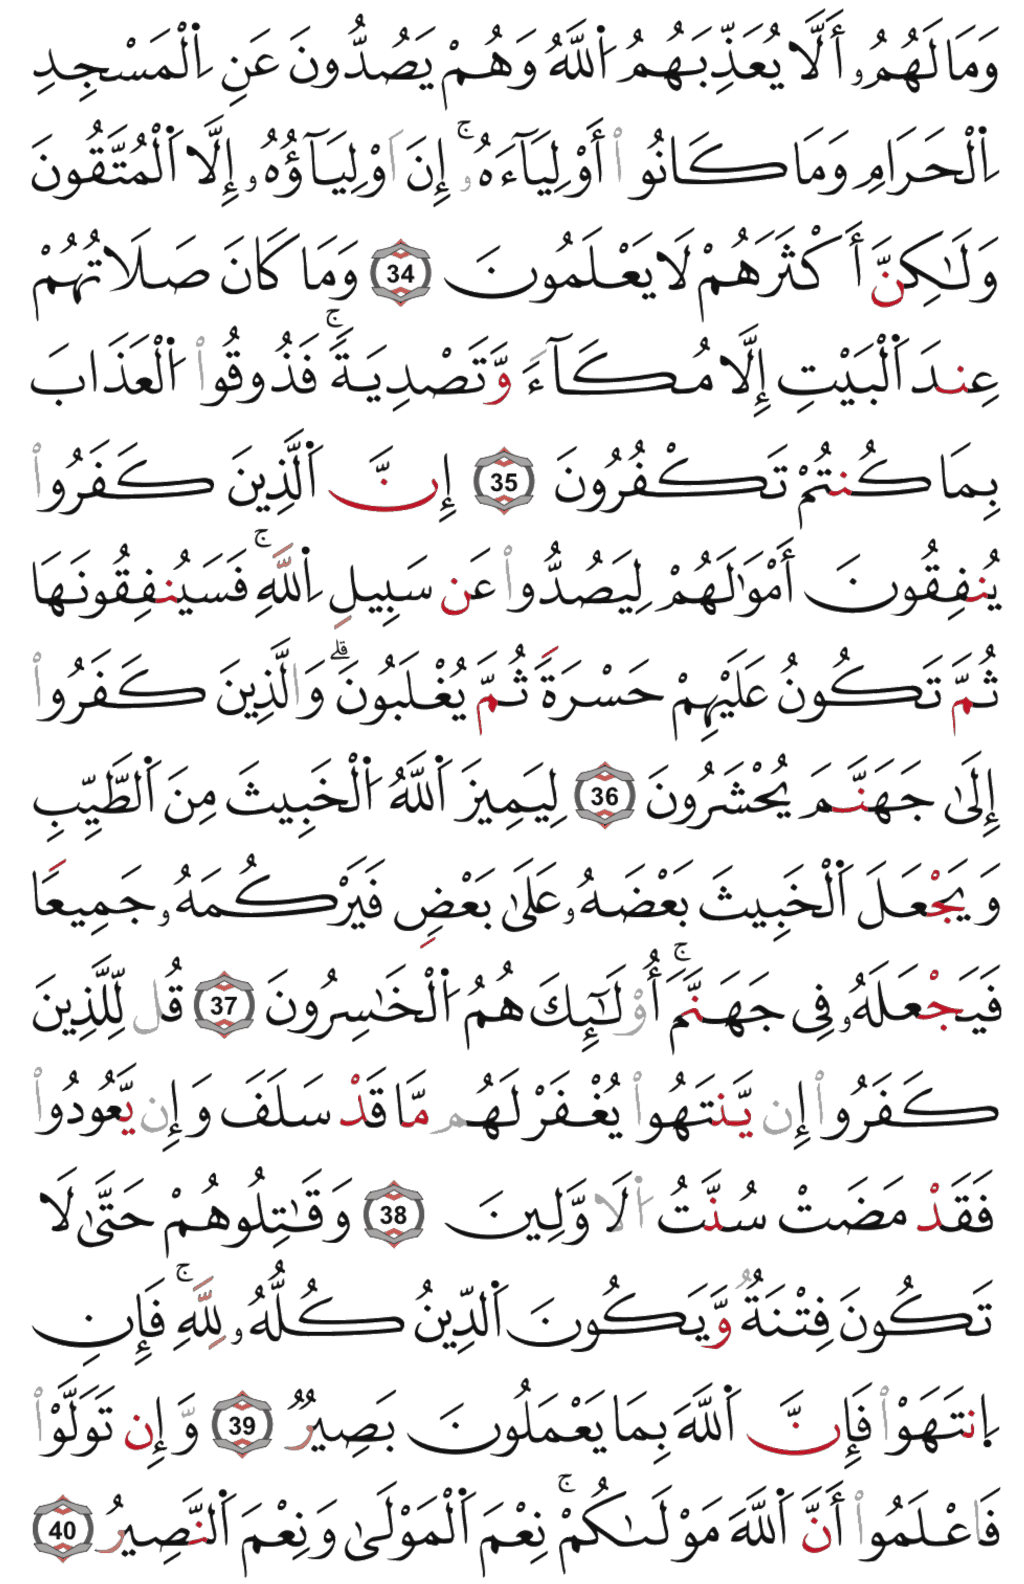 وَمَا لَهُمُۥٓ أَلَّا يُعَذِّبَهُمُ اُ۬للَّهُ وَهُمْ يَصُدُّونَ عَنِ اِ۬لْمَسْجِدِ
اِ۬لْحَرَامِ وَمَا كَانُوٓاْ أَوْلِيَآءَهُۥٓۚ إِنَ اَوْلِيَآؤُهُۥٓ إِلَّا اَ۬لْمُتَّقُونَ
وَلَٰكِنَّ أَكْثَرَهُمْ لَا يَعْلَمُونَ 34 وَمَا كَانَ صَلَاتُهُمْ
عِندَ اَ۬لْبَيْتِ إِلَّا مُكَآءً وَّتَصْدِيَةًۚ فَذُوقُواْ اُ۬لْعَذَابَ
بِمَا كُنتُمْ تَكْفُرُونَ 35 إِنَّ اَ۬لَّذِينَ كَفَرُواْ
يُنفِقُونَ أَمْوَٰلَهُمْ لِيَصُدُّواْ عَن سَبِيلِ اِ۬للَّهِۚ فَسَيُنفِقُونَهَا
ثُمَّ تَكُونُ عَلَيْهِمْ حَسْرَةً ثُمَّ يُغْلَبُونَۗ وَالَّذِينَ كَفَرُوٓاْ
إِلَىٰ جَهَنَّمَ يُحْشَرُونَ 36 لِيَمِيزَ اَ۬للَّهُ اُ۬لْخَبِيثَ مِنَ اَ۬لطَّيِّبِ
وَيَجْعَلَ اَ۬لْخَبِيثَ بَعْضَهُۥ عَلَىٰ بَعْضٍ فَيَرْكُمَهُۥ جَمِيعًا
فَيَجْعَلَهُۥ فِى جَهَنَّمَۚ أُوْلَٰٓئِكَ هُمُ اُ۬لْخَٰسِرُونَ 37 قُل لِّلَّذِينَ
كَفَرُوٓاْ إِن يَّنتَهُواْ يُغْفَرْ لَهُم مَّا قَدْ سَلَفَ وَإِن يَّعُودُواْ
فَقَدْ مَضَتْ سُنَّتُ اُ۬لَاوَّلِينَ 38 وَقَٰتِلُوهُمْ حَتَّىٰ لَا
تَكُونَ فِتْنَةٌ وَّيَكُونَ اَ۬لدِّينُ كُلُّهُۥ لِلَّهِۚ فَإِنِ
اِ۪نتَهَوْاْ فَإِنَّ اَ۬للَّهَ بِمَا يَعْمَلُونَ بَصِيرٌ 39 وَّإِن تَوَلَّوْاْ
فَاعْلَمُوٓاْ أَنَّ اَ۬للَّهَ مَوْلَىٰكُمْۚ نِعْمَ اَ۬لْمَوْلَىٰ وَنِعْمَ اَ۬لنَّصِيرُ 40